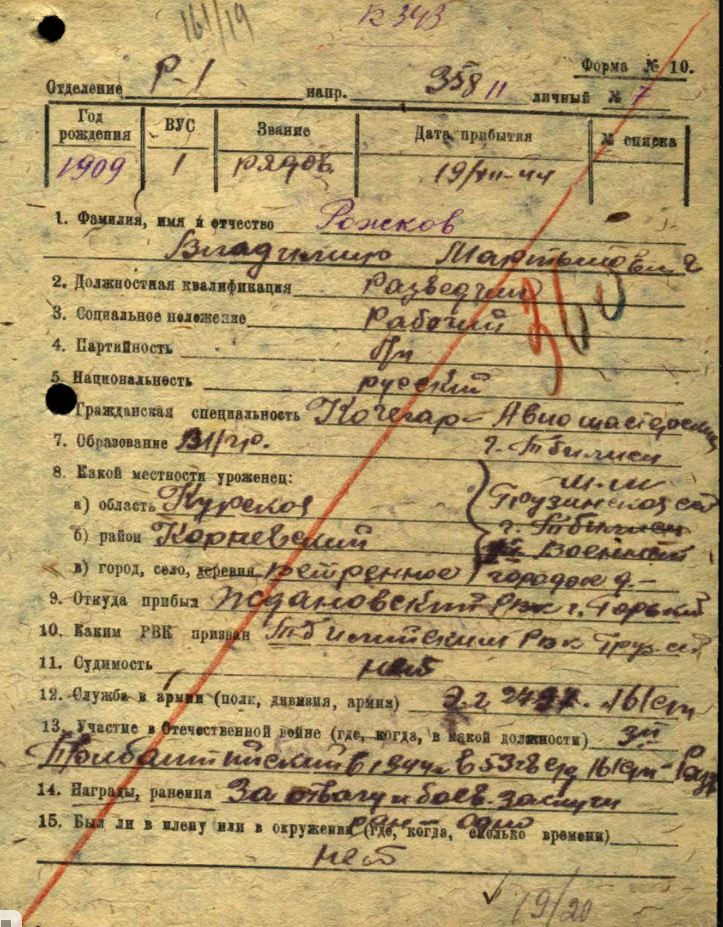 161/19
к 343
Форма № 10.
Отделение Р-1 напр. 358 11 личный № 7
Год рождения ВУС Звание Дата прибытия № списка
1909 1 рядов. 19/VII-44
1. Фамилия, имя и отчество Рожков
Владимир Мартынович
2. Должностная квалификация разведчик
3. Социальное положение рабочий
360
4. Партийность б/п
5. Национальность русский
Гражданская специальность Кочегар - Авиомастерские
7. Образование г. Тбилиси
8. Какой местности уроженец:
а) область Курская Грузинской
б) район Кореневский г. Тбилиси
Военный
в) город, село, деревня городок д.-
9. Откуда прибыл Ждановский Рвк г. Горький
10. Каким РВК призван Тбилийским Рвк Груз.
11. Судимость нет
12. Служба в армии (полк, дивизия, армия) 161сп
13. Участие в Отечественной войне (где, когда, в какой должности) 3й
Прибалтийский в 1944г. в 53гв сд 161сп - Разв
14. Награды, ранения За отвагу и боев. заслуги
одно
15. Был ли в плену или в окружении (где, когда, сколько времени)
нет
19/20